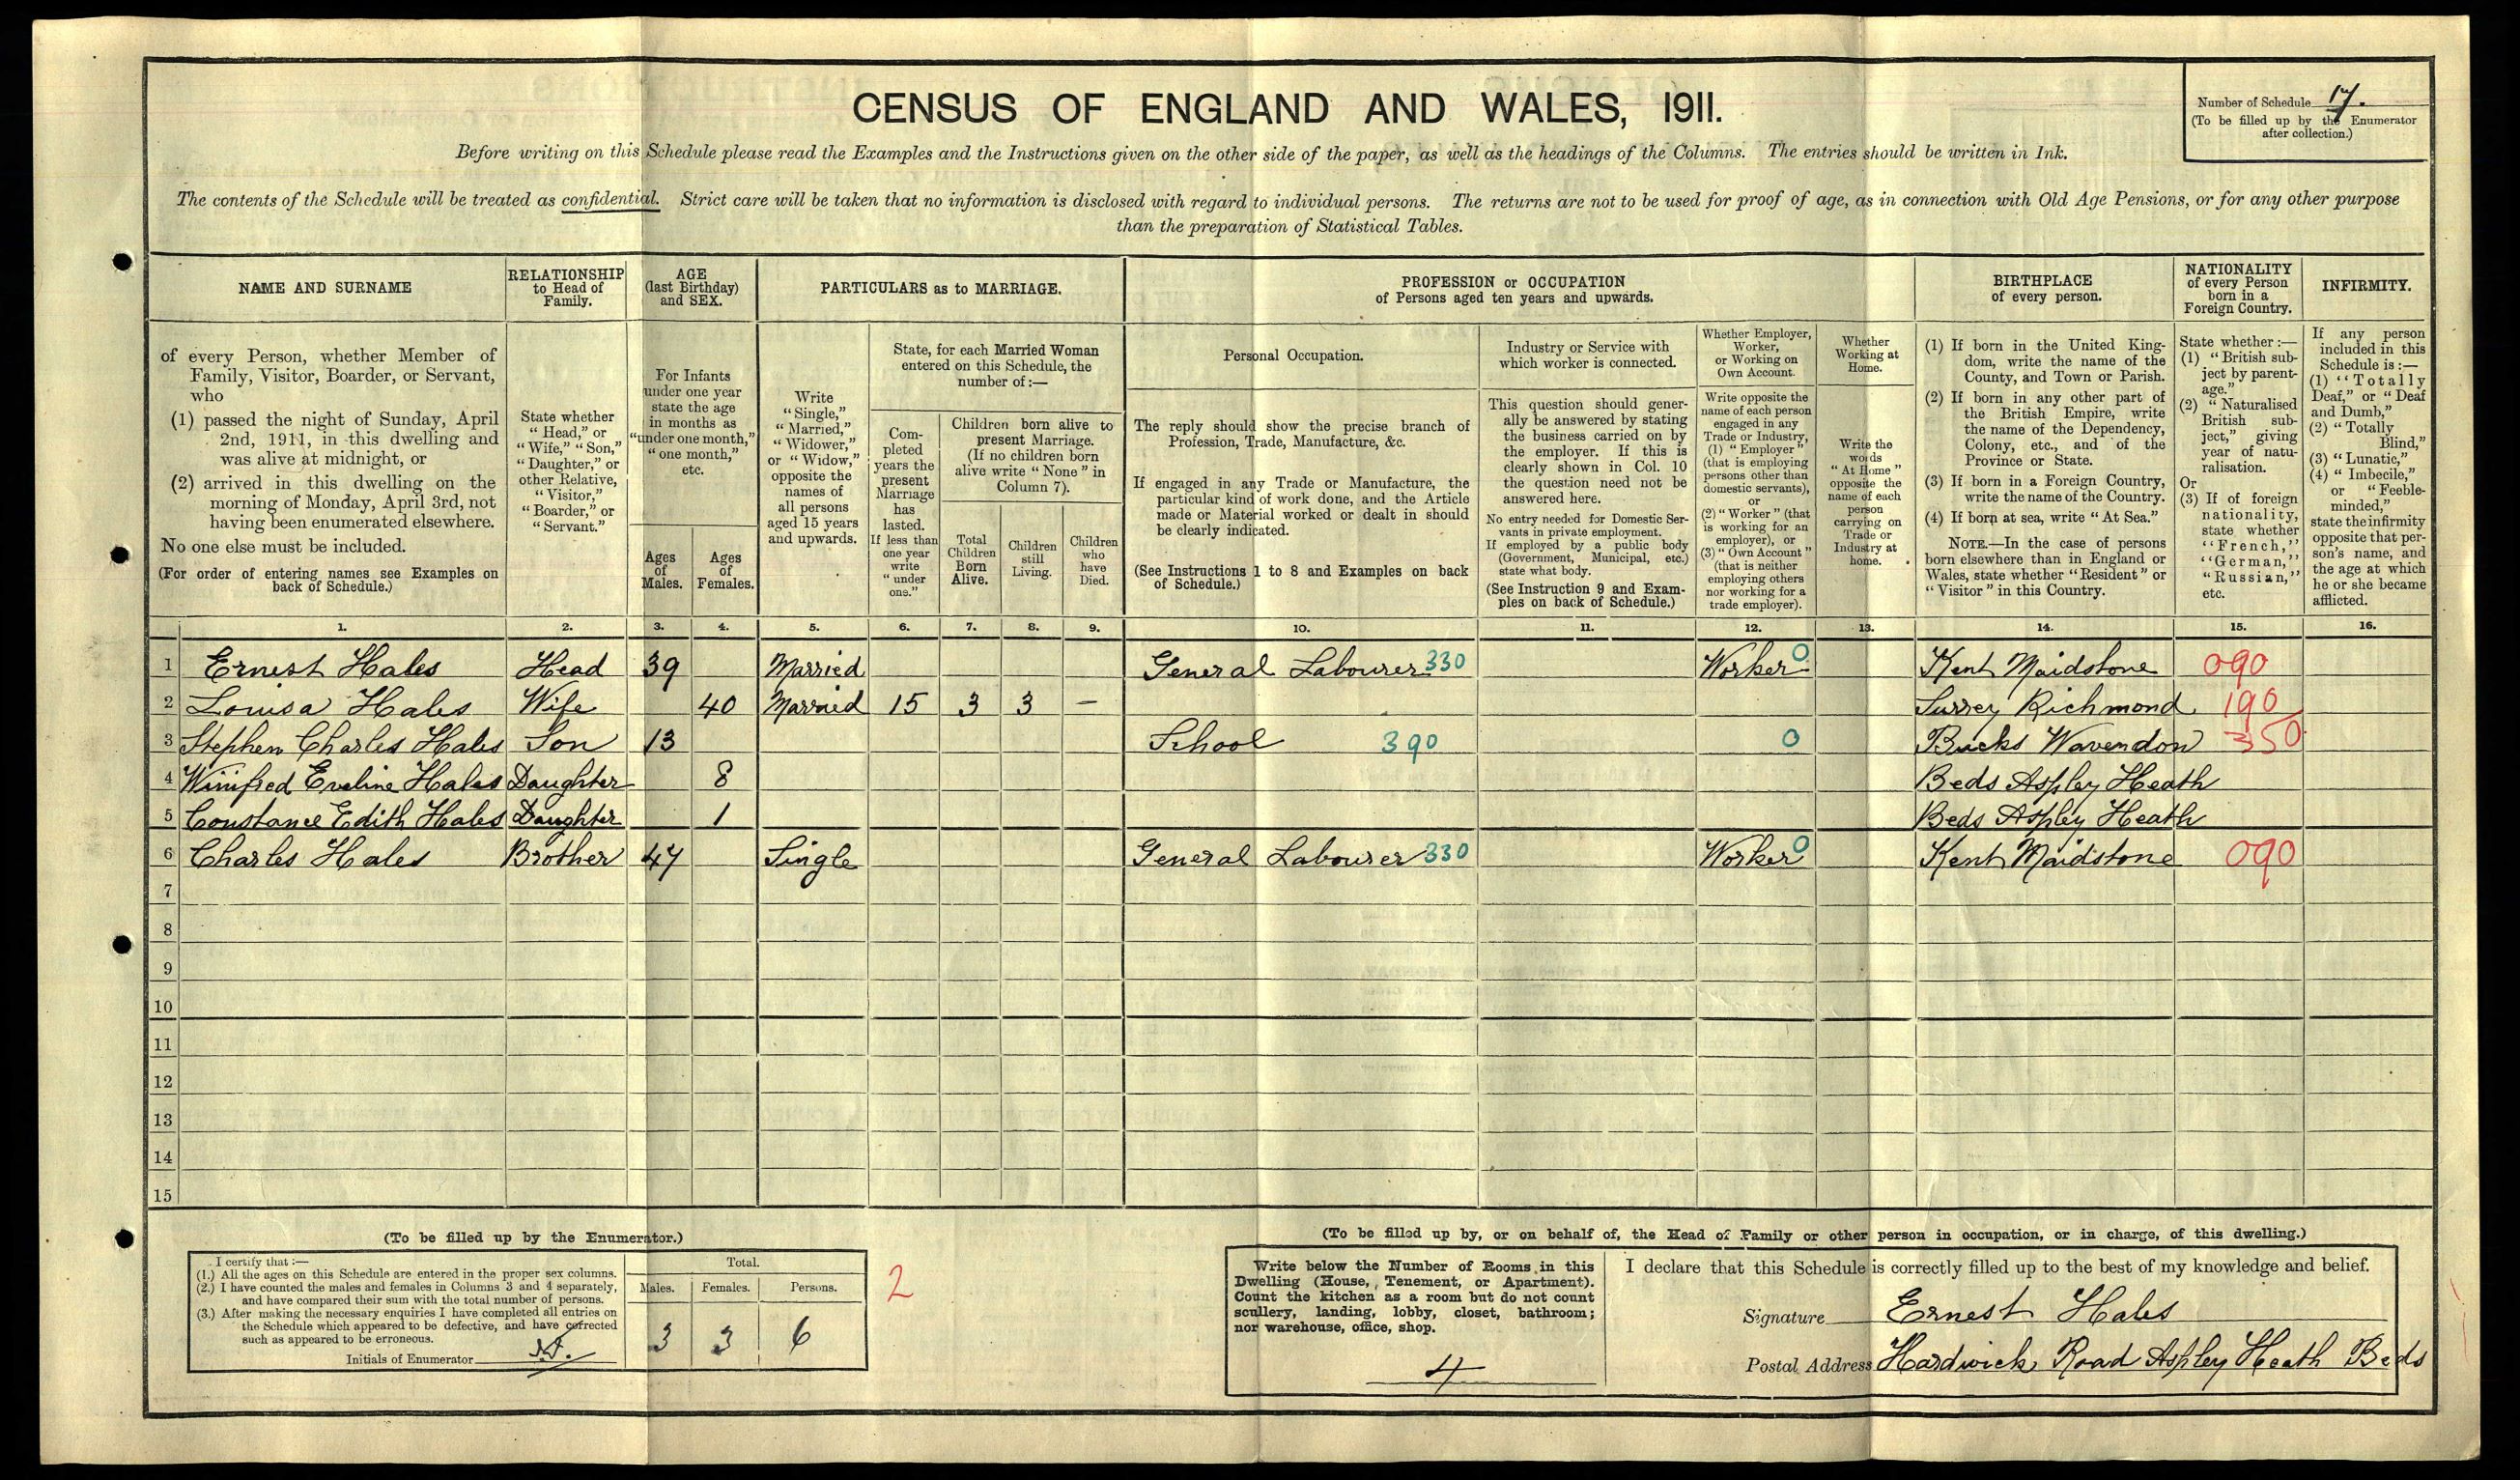 CENSUS OF ENGLAND AND WALES, 1911.
Number of Schedule 17.
(To be filled up by the Enumerator
after collection.)
Before writing on this Schedule please read the Examples and the Instructions given on the other side of the paper, as well as the headings of the Columns. The entries should be written in Ink.
The contents of the Schedule will be treated as confidential. Strict care will be taken that no information is disclosed with regard to individual persons. The returns are not to be used for proof of age, as in connection with Old Age Pensions, or for any other purpose
than the preparation of Statistical Tables.
NAME AND SURNAME
of every Person, whether Member of
Family, Visitor, Boarder, or Servant,
who
(1) passed the night of Sunday, April
2nd, 1911, in this dwelling and
was alive at midnight, or
(2) arrived in this dwelling on the
morning of Monday, April 3rd, not
having been enumerated elsewhere.
No one else must be included.
(For order of entering names see Examples on
back of Schedule.)
RELATIONSHIP
to Head of
Family.
State whether
"Head," or
"Wife," "Son,"
"Daughter," or
other Relative,
"Visitor,"
"Boarder," or
"Servant."
AGE
(last Birthday)
and SEX.
For Infants
under one year
state the age
in months as
"under one month,"
"one month,"
etc.
Ages
of
Males.
Ages
of
Females.
PARTICULARS as to MARRIAGE.
Write
"Single,"
"Married,"
"Widower,"
or "Widow,"
opposite the
names of
all persons
aged 15 years
and upwards.
State, for each Married Woman
entered on this Schedule, the
number of:—
Com-
pleted
years the
present
Marriage
has
lasted.
If less than
one year
write
"under
one."
Children born alive to
present Marriage.
(If no children born
alive write "None" in
Column 7).
Total
Children
Born
Alive.
Children
still
Living.
Children
who
have
Died.
PROFESSION or OCCUPATION
of Persons aged ten years and upwards.
Personal Occupation.
The reply should show the precise branch of
Profession, Trade, Manufacture, &c.
If engaged in any Trade or Manufacture, the
particular kind of work done, and the Article
made or Material worked or dealt in should
be clearly indicated.
(See Instructions 1 to 8 and Examples on back
of Schedule.)
Industry or Service with
which worker is connected.
This question should gener-
ally be answered by stating
the business carried on by
the employer. If this is
clearly shown in Col. 10
the question need not be
answered here.
No entry needed for Domestic Ser-
vants in private employment.
If employed by a public body
(Government, Municipal, etc.)
state what body.
(See Instruction 9 and Exam-
ples on back of Schedule.)
Whether Employer,
Worker,
or Working on
Own Account.
Write opposite the
name of each person
engaged in any
Trade or Industry,
(1) "Employer"
(that is employing
persons other than
domestic servants),
or
(2) "Worker" (that
is working for an
employer), or
(3) "Own Account"
(that is neither
employing others
nor working for a
trade employer).
Whether
Working at
Home.
Write the
words
"At Home"
opposite the
name of each
person
carrying on
Trade or
Industry at
home.
BIRTHPLACE
of every person.
(1) If born in the United King-
dom, write the name of the
County, and Town or Parish.
(2) If born in any other part of
the British Empire, write
the name of the Dependency,
Colony, etc., and of the
Province or State.
(3) If born in a Foreign Country,
write the name of the Country.
(4) If born at sea, write "At Sea."
NOTE.—In the case of persons
born elsewhere than in England or
Wales, state whether "Resident" or
"Visitor" in this Country.
NATIONALITY
of every Person
born in a
Foreign Country.
State whether :—
(1) "British sub-
ject by parent-
age."
(2) "Naturalised
British sub-
ject," giving
year of natu-
ralisation.
Or
(3) If of foreign
nationality,
state whether
"French,"
"German,"
"Russian,"
etc.
INFIRMITY.
If any person
included in this
Schedule is:—
(1) "Totally
Deaf," or "Deaf
and Dumb,"
(2) "Totally
Blind,"
(3) "Lunatic,"
(4) "Imbecile,"
or "Feeble-
minded,"
state the infirmity
opposite that per-
son's name, and
the age at which
he or she became
afflicted.
1. 2. 3. 4. 5. 6. 7. 8. 9. 10. 11. 12. 13. 14. 15. 16.
1 Ernest Hales Head 39 Married General Labourer 330 Worker 0 Kent Maidstone 090
2 Louisa Hales Wife 40 Married 15 3 3 — Surrey Richmond 190
3 Stephen Charles Hales Son 13 School 390 0 Bucks Wavendon 350
4 Winifred Eveline Hales Daughter 8 Beds Aspley Heath
5 Constance Edith Hales Daughter 1 Beds Aspley Heath
6 Charles Hales Brother 47 Single General Labourer 330 Worker 0 Kent Maidstone 090
7
8
9
10
11
12
13
14
15
(To be filled up by the Enumerator.)
I certify that :—
(1.) All the ages on this Schedule are entered in the proper sex columns.
(2.) I have counted the males and females in Columns 3 and 4 separately,
and have compared their sum with the total number of persons.
(3.) After making the necessary enquiries I have completed all entries on
the Schedule which appeared to be defective, and have corrected
such as appeared to be erroneous.
Initials of Enumerator
Total.
Males. Females. Persons.
3 3 6
2
(To be filled up by, or on behalf of, the Head of Family or other person in occupation, or in charge, of this dwelling.)
Write below the Number of Rooms in this
Dwelling (House, Tenement, or Apartment).
Count the kitchen as a room but do not count
scullery, landing, lobby, closet, bathroom;
nor warehouse, office, shop.
4
I declare that this Schedule is correctly filled up to the best of my knowledge and belief.
Signature Ernest Hales
Postal Address Hardwick Road Aspley Heath Beds